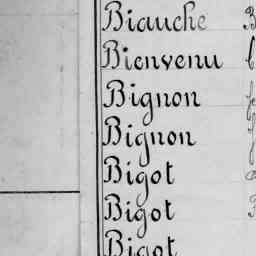 Biauche
Bienvenu
Bignon
Bignon
Bigot
Bigot
Bigot